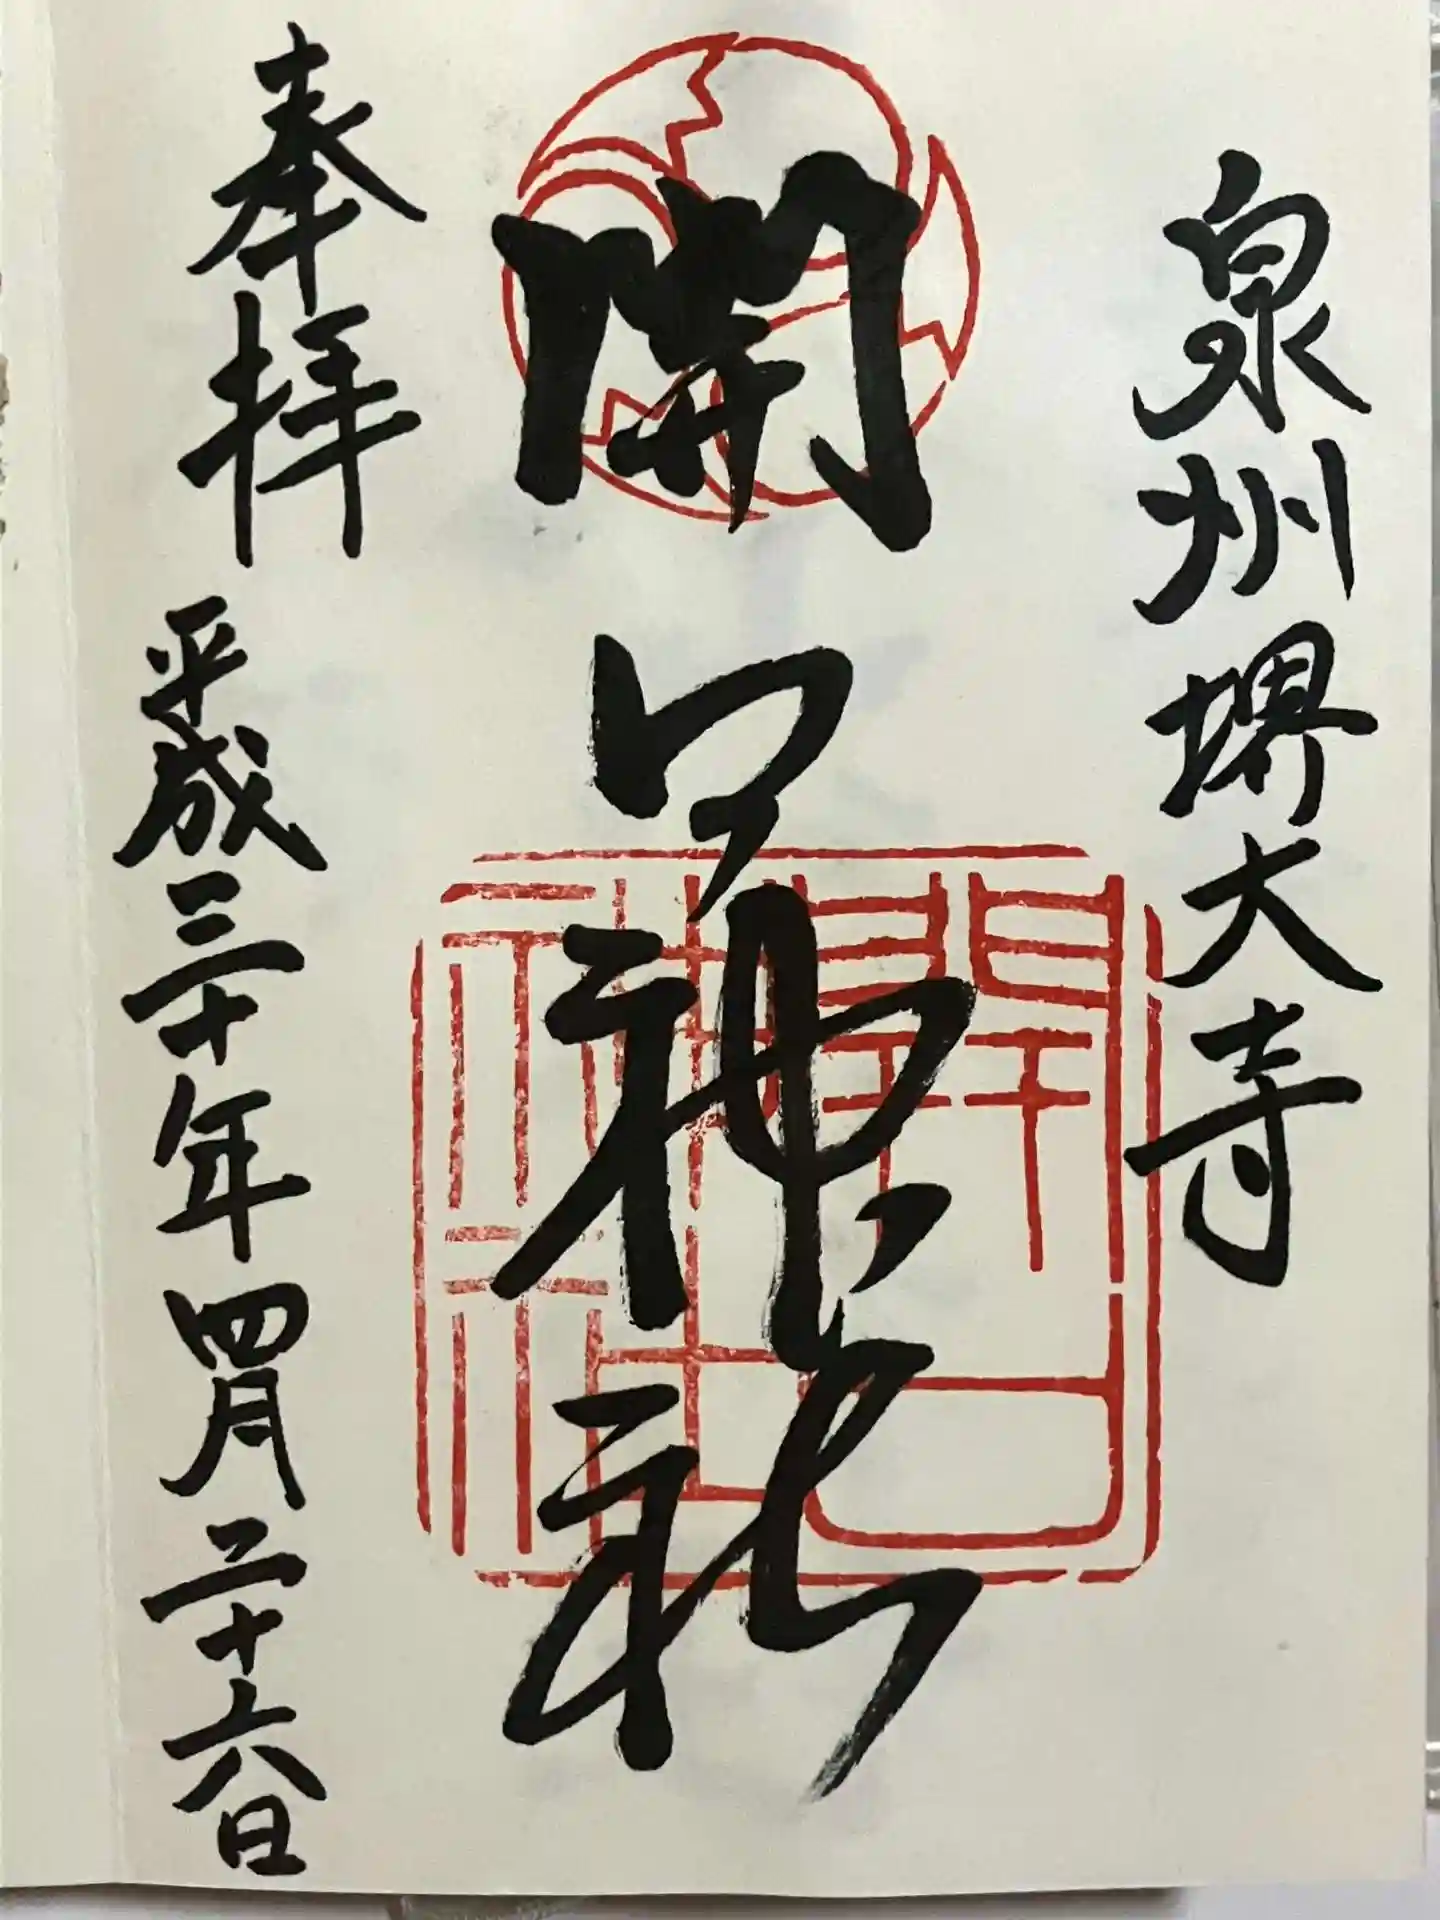 泉州堺大寺
開口神社
開口神社
奉拝
平成三十年四月二十六日